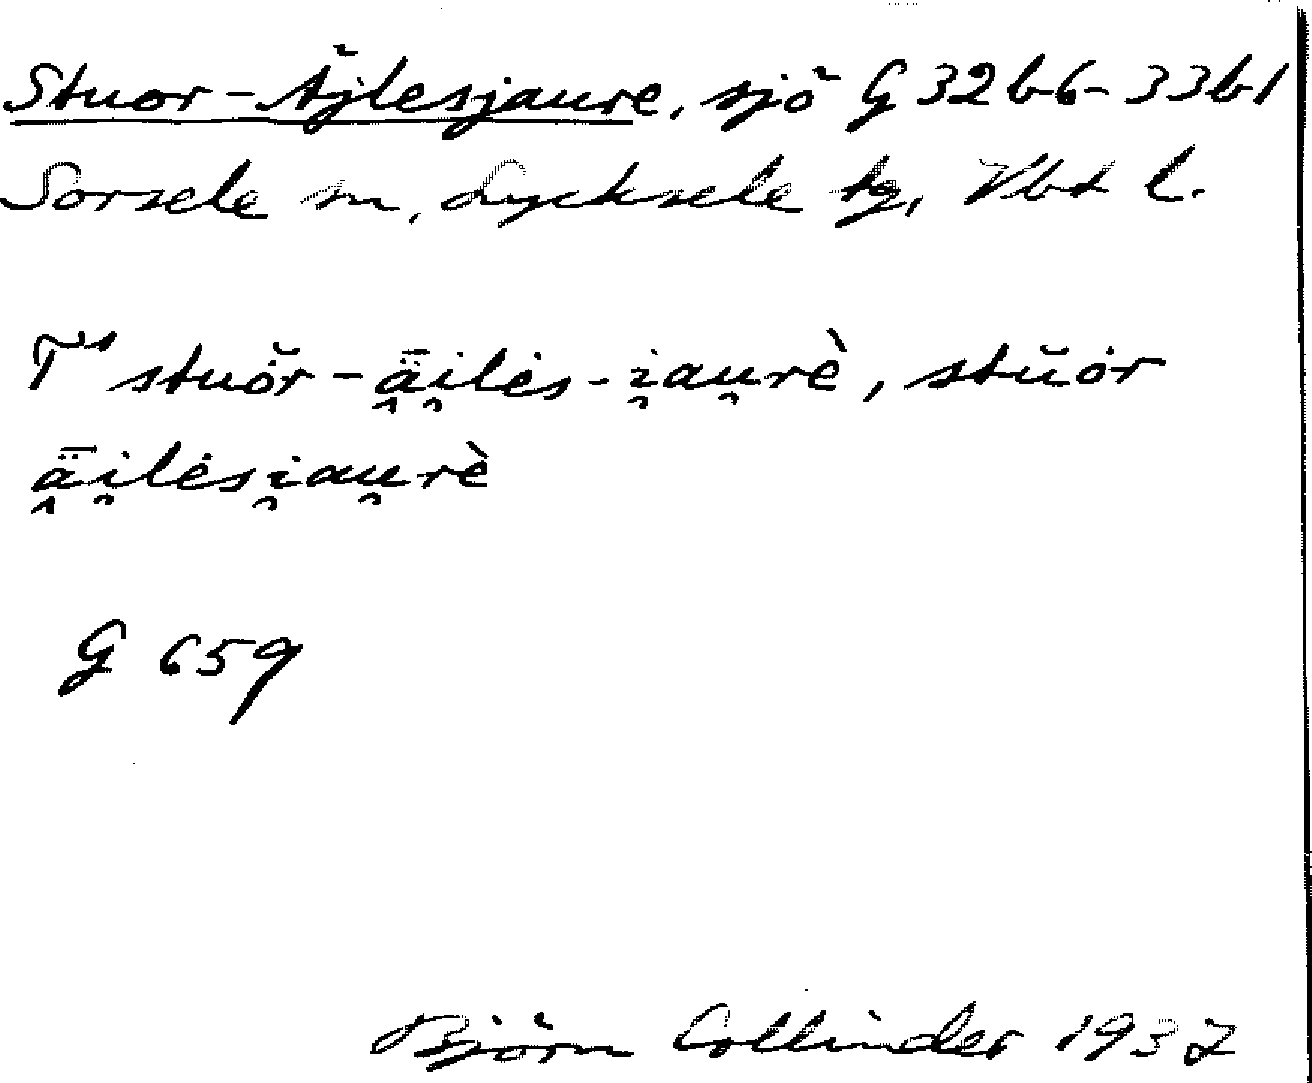 Stuor-Äjlesjaure, sjö G 32b6-33b1
Sorsele sn, Lycksele tg, Vbt l.
T¹ stuǒr-ǟ̯i̯lės-i̯au̯rè, stŭȯr
ǟ̯i̯lėsi̯au̯rè
G 659
Björn Collinder 1937